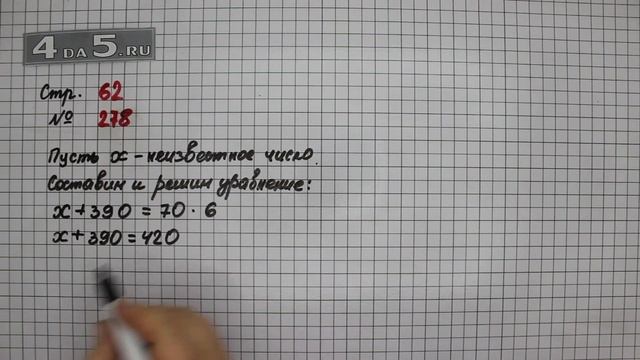 4 ДА 5.RU
Стр. 62
№ 278
Пусть x - неизвестное число.
Составим и решим уравнение:
x + 390 = 70 · 6
x + 390 = 420